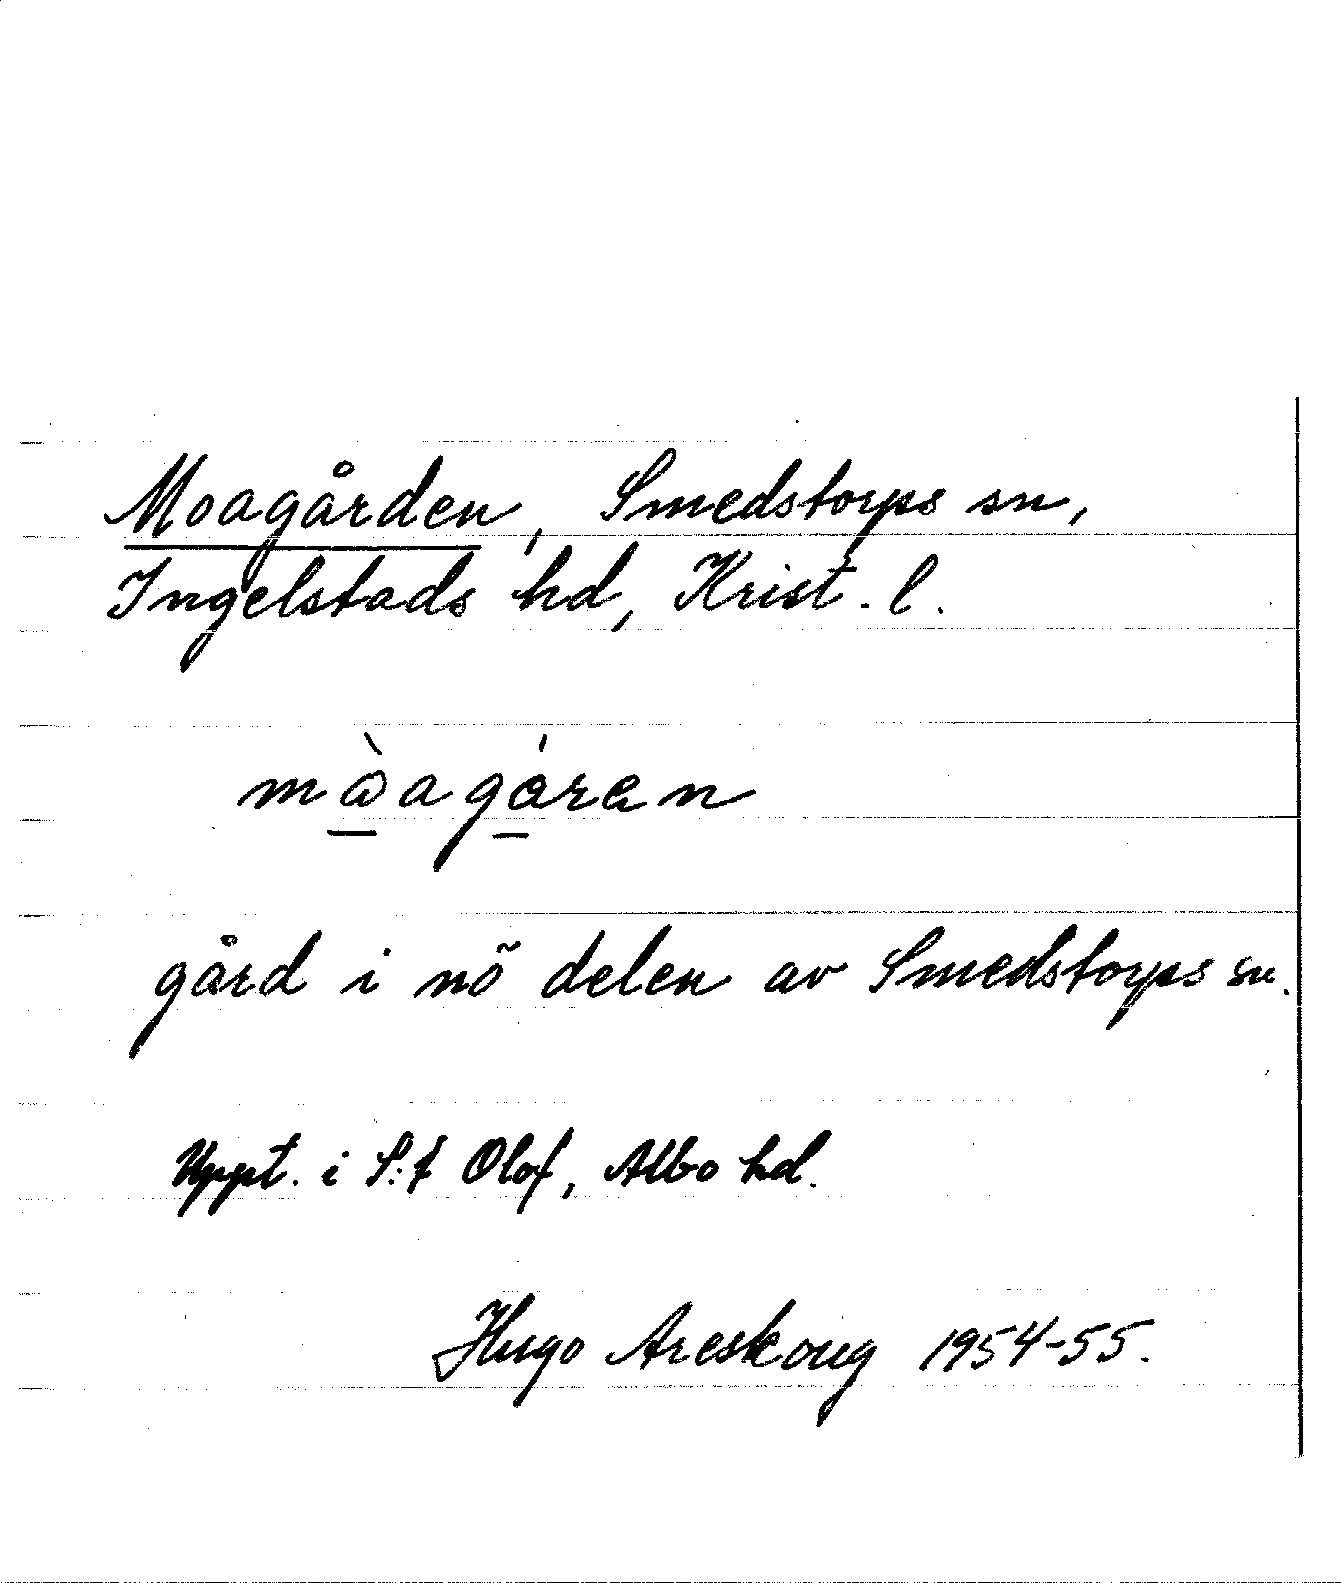 Moagården, Smedstorps sn,
Ingelstads hd, Krist. l.
gård i nö delen av Smedstorps sn.
Uppt. i S:t Olof, Albo hd.
Hugo Areskoug 1954-55.